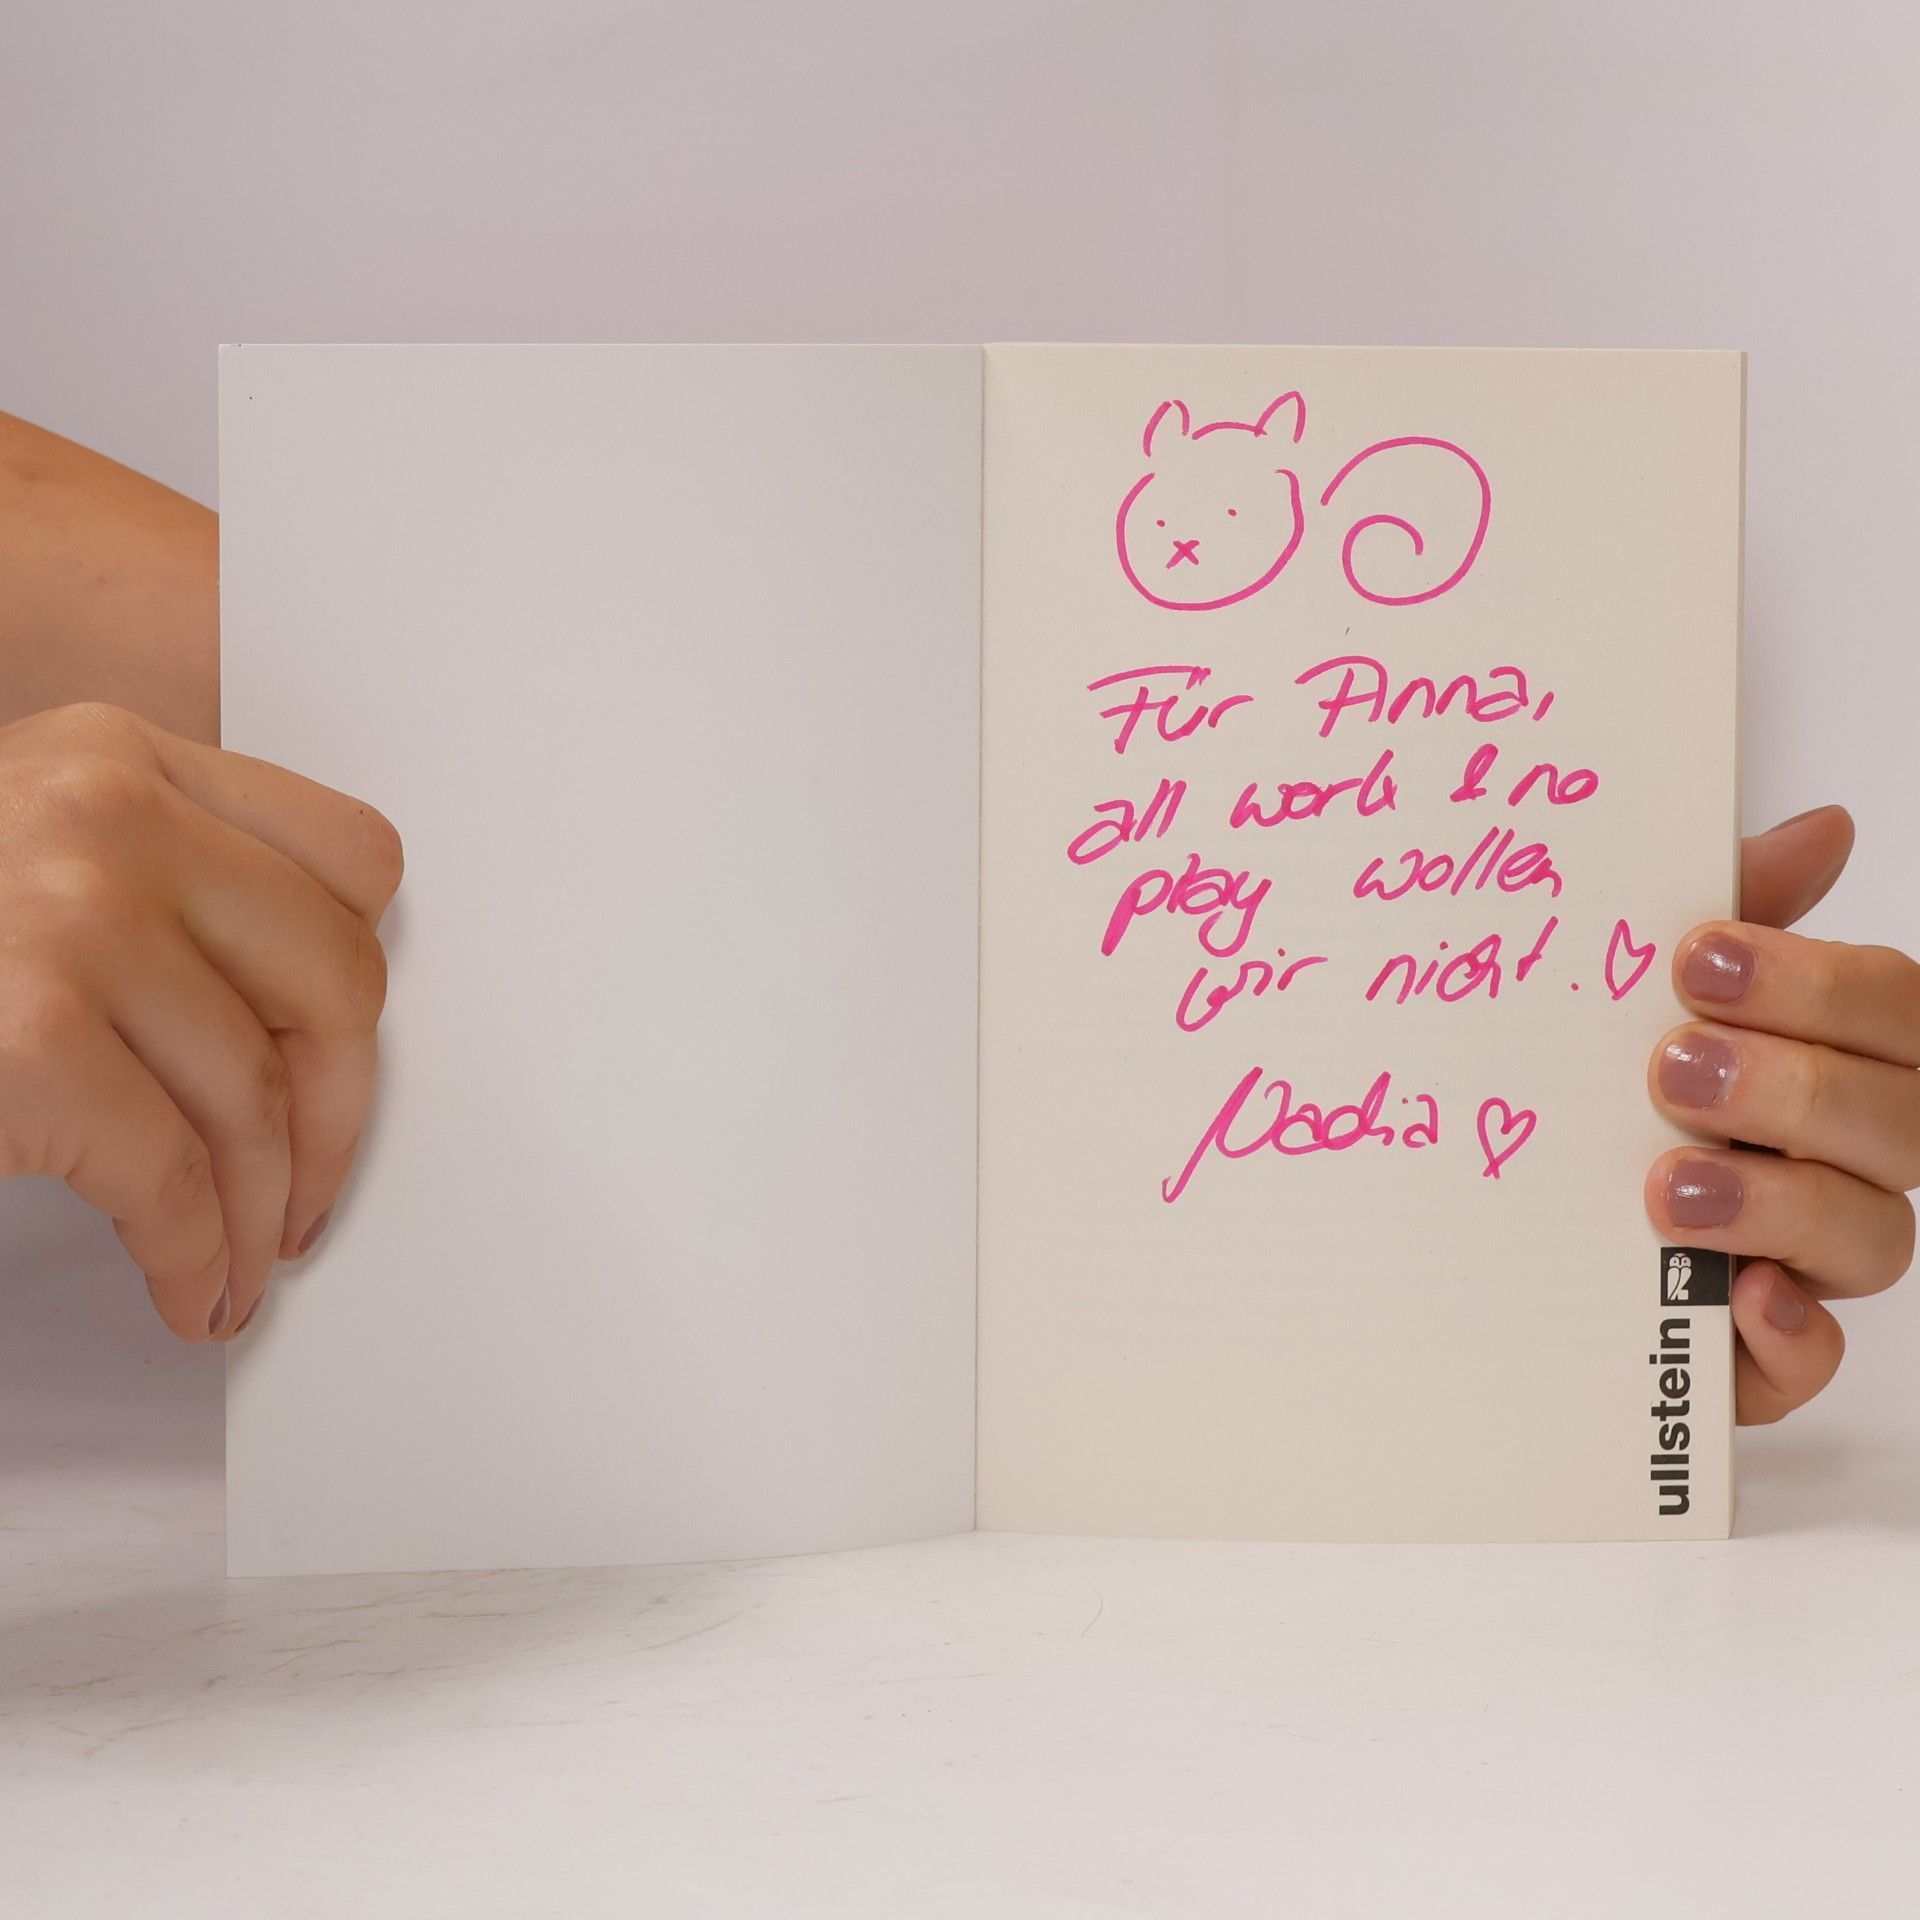 Für Anna,
all work & no
play wollen
wir nicht. ♡
Nadia ♡
ullstein